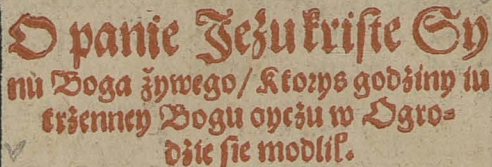 O panie Jezukriste Sy
nu Boga żywego / Ktorys godziny iu
trzenney Bogu oyczu w Ogro⸗
dzie sie modlil.